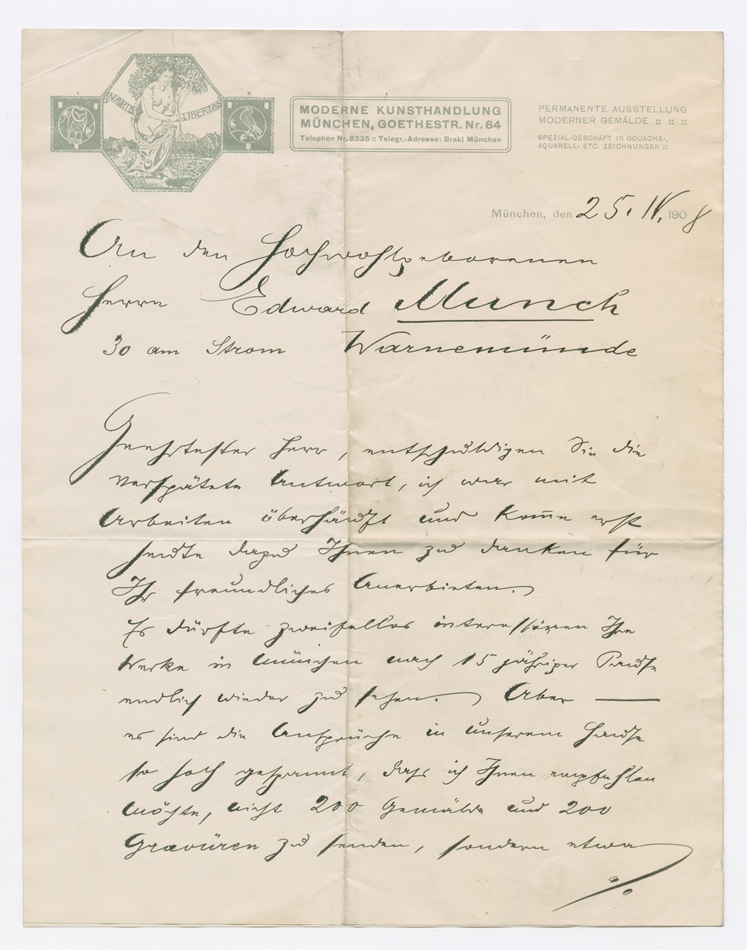 IN ARTE LIBERTAS
MODERNE KUNSTHANDLUNG
MÜNCHEN, GOETHESTR. Nr. 64
Telephon Nr. 8335 :: Telegr.-Adresse: Brakl München
PERMANENTE AUSSTELLUNG
MODERNER GEMÄLDE :: :: ::
SPEZIAL-GESCHÄFT IN GOUACHE-,
AQUARELL- ETC. ZEICHNUNGEN ::
München, den 25. IV. 1908
An den Hochwohlgeborenen
Herrn Edward Munch
30 am Strom Warnemünde
Geehrtester Herr, entschuldigen Sie die
verspätete Antwort, ich war mit
Arbeiten überhäuft und kom̅e erst
heute dazu Ihnen zu danken für
Ihr freundliches Anerbieten.
Es dürfte zweifellos interessiren Ihre
Werke in München nach 15 jähriger Pause
endlich wieder zu sehen. Aber —
es sind die Ansprüche in unserem Hause
so hoch gespannt, dass ich Ihnen empfehlen
möchte, nicht 200 Gemälde und 200
Gravüren zu senden, sondern etwa